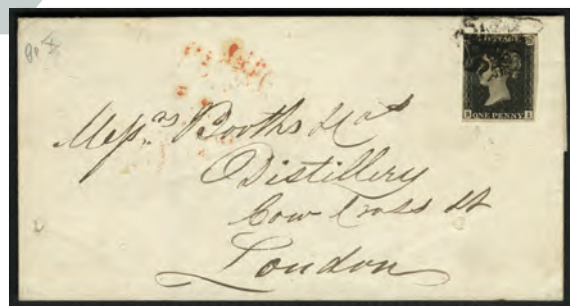 POSTAGE
ONE PENNY
Messrs Booths & Co
Distillery
Cow Cross St
London